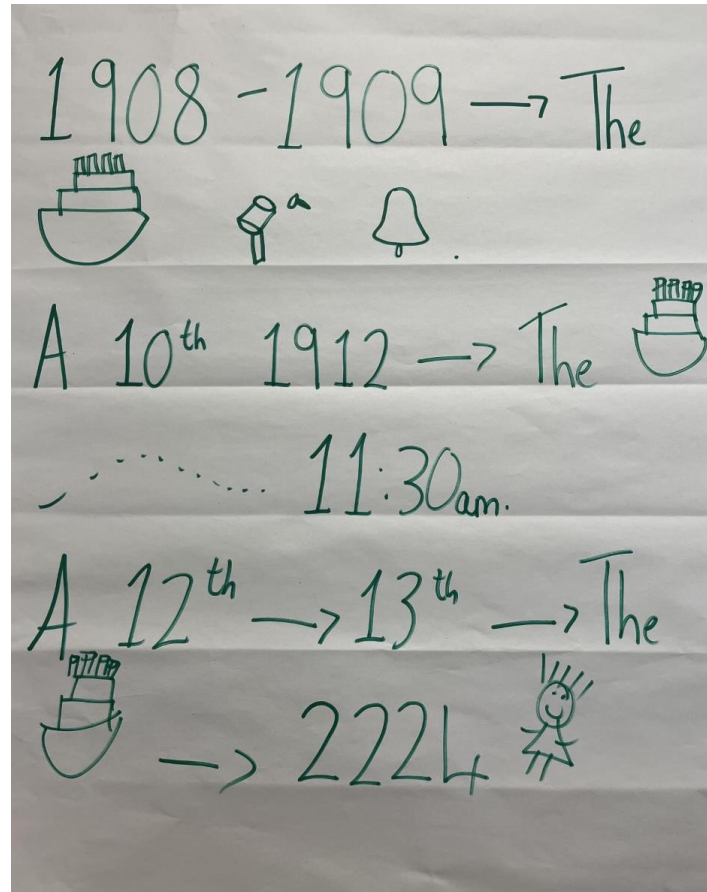 1908-1909 → The
.
A 10th 1912 → The
11:30am.
A 12th → 13th → The
→ 2224